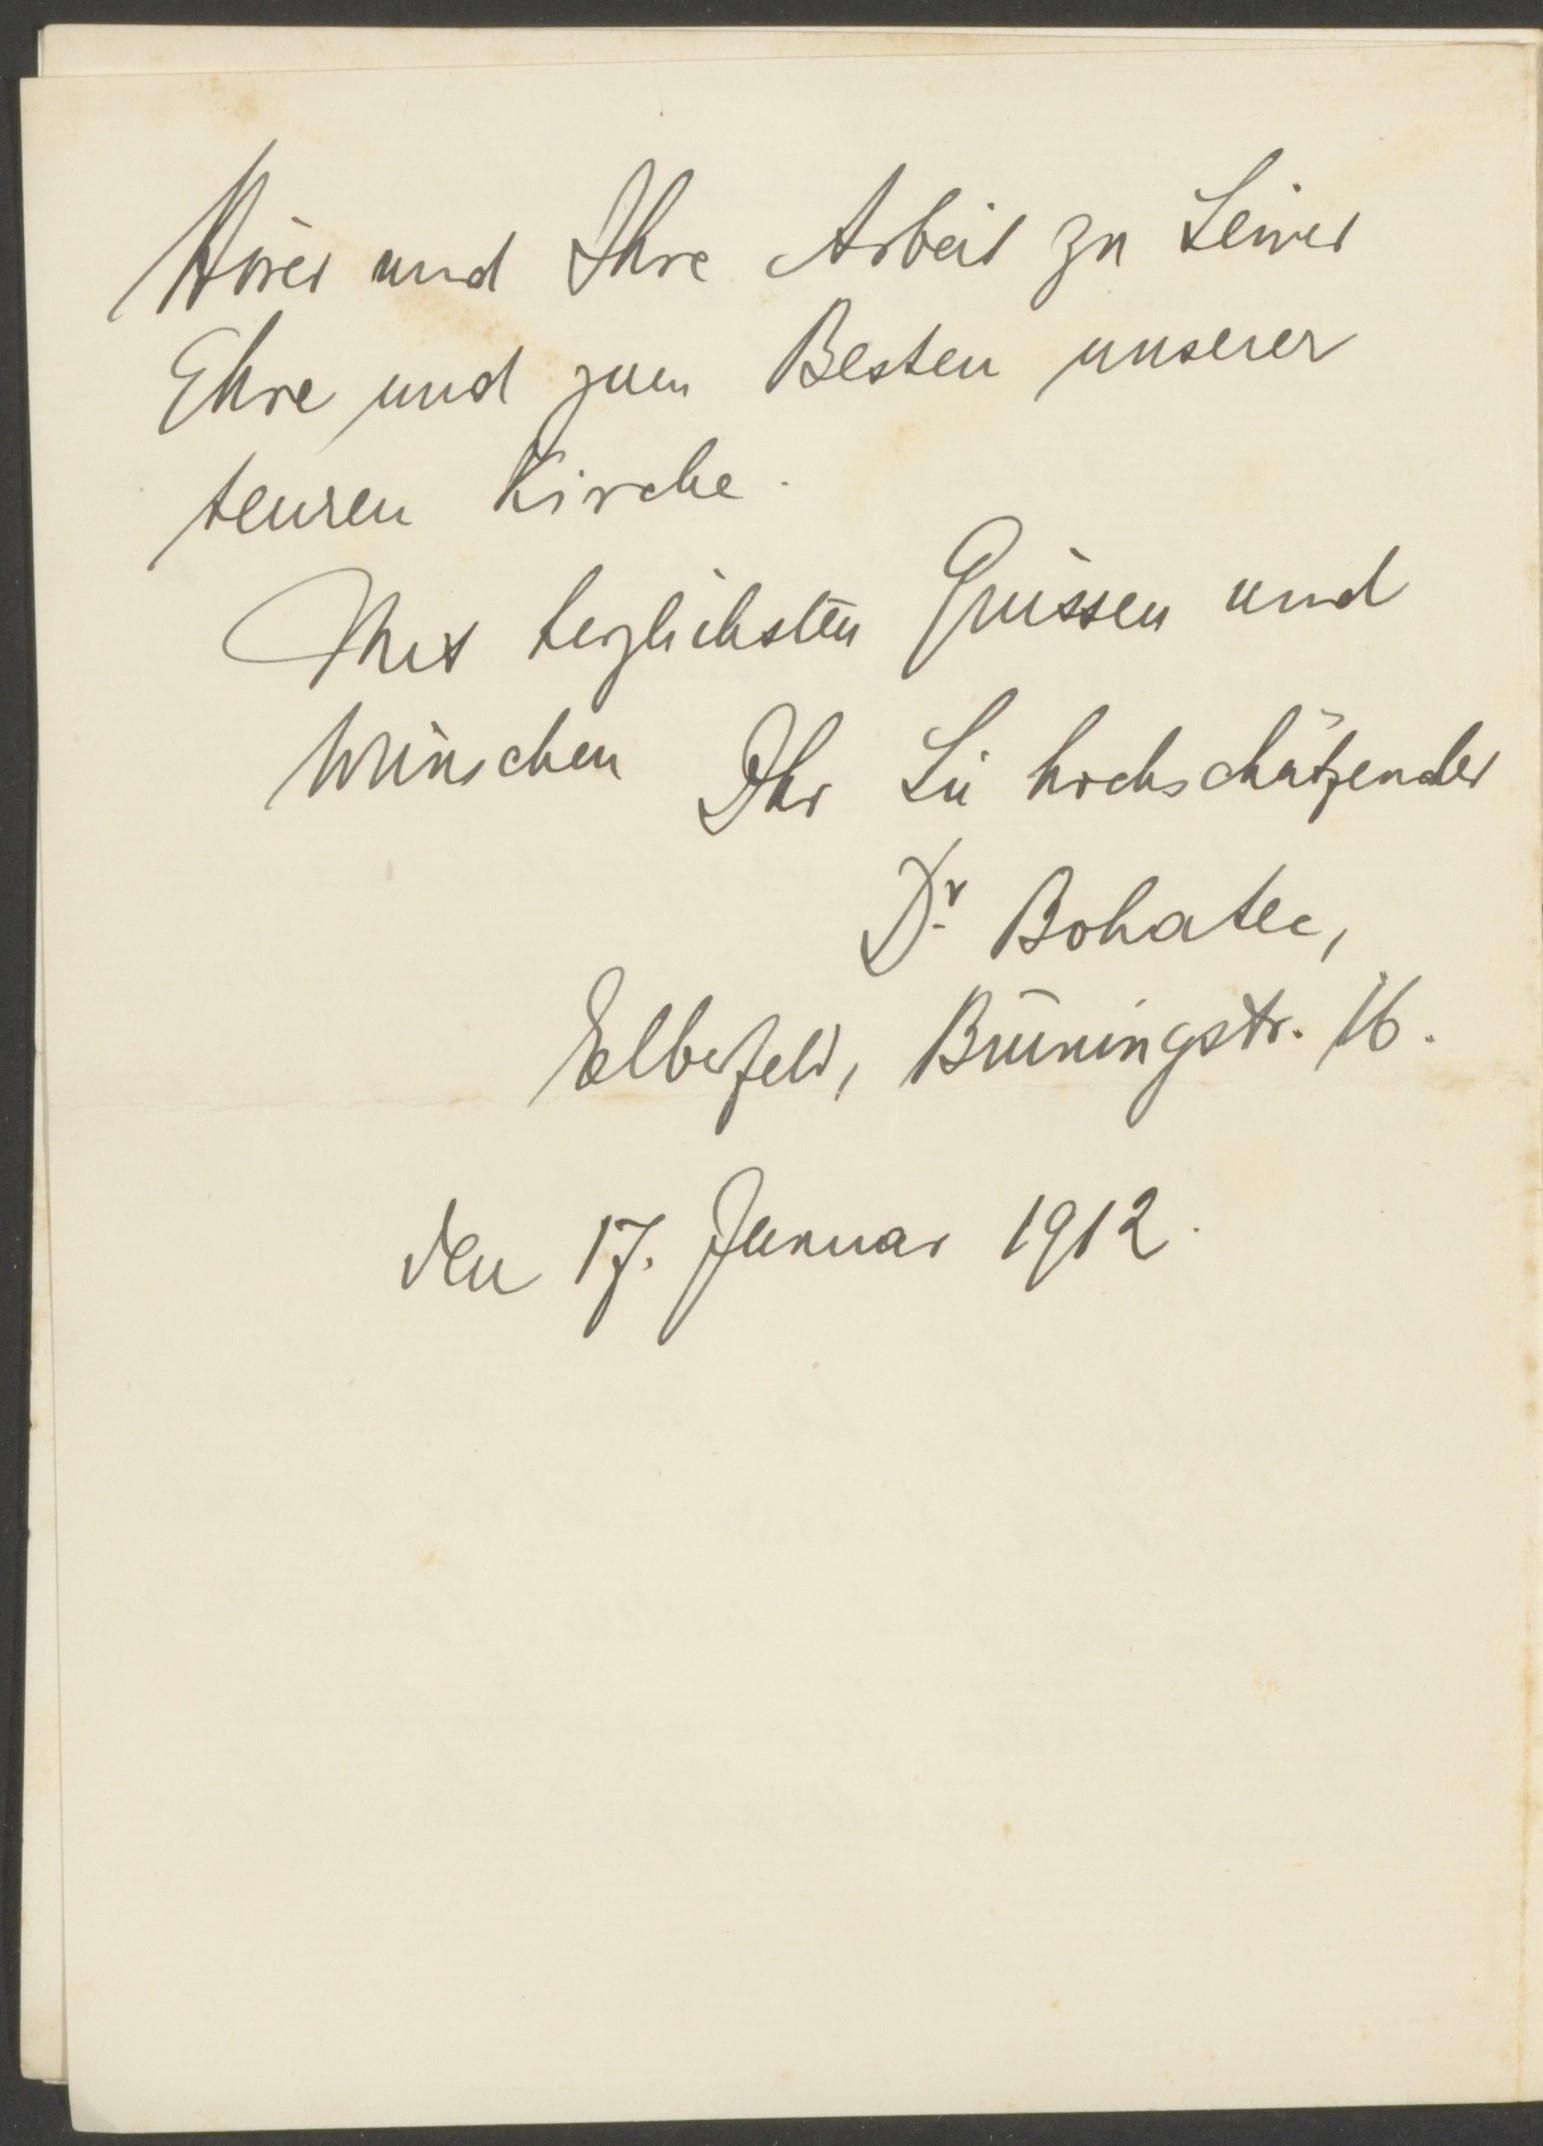 Hörer und Ihre Arbeit zu Seiner
Ehre und zum Besten unserer
teuren Kirche.
Mit herzlichsten Grüssen und
Wünschen Ihr Sie hochschätzender
Dr. Bohatec,
Elberfeld, Brüningstr. 16.
den 17. Januar 1912.